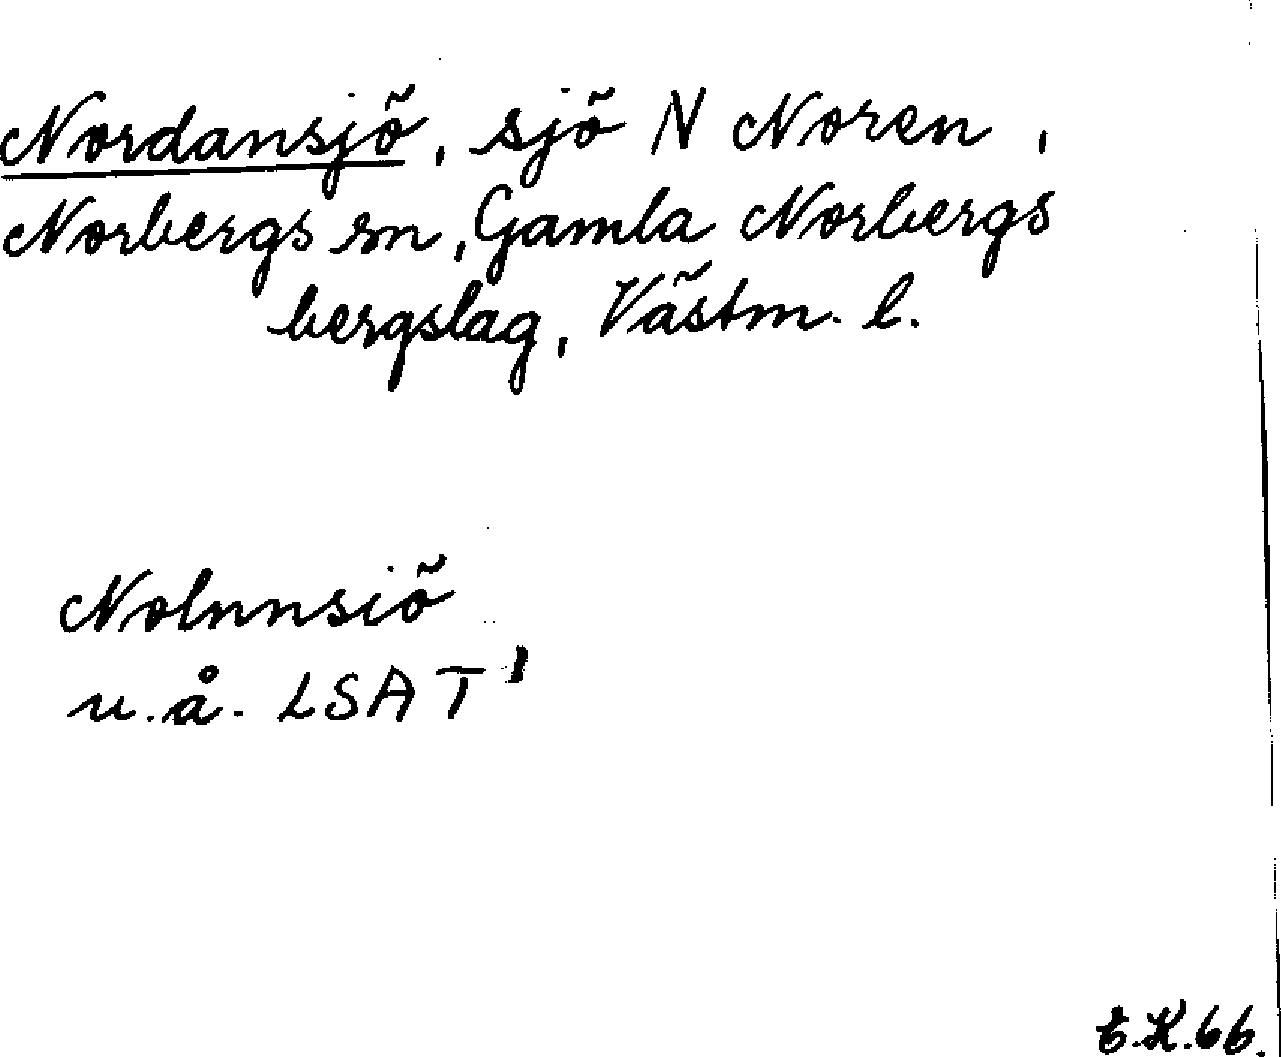 Nordansjö, sjö N Noren,
Norbergs sn, Gamla Norbergs
bergslag, Västm. l.
Nolnnsiö
u.å. LSA T¹
E.K.66.